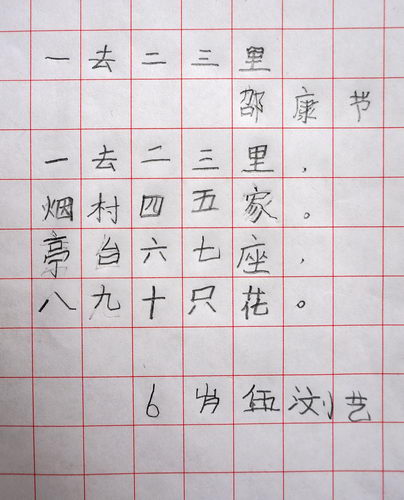 一去二三里
邵康节
一去二三里，
烟村四五家。
亭台六七座，
八九十只花。
6岁伍浏艺